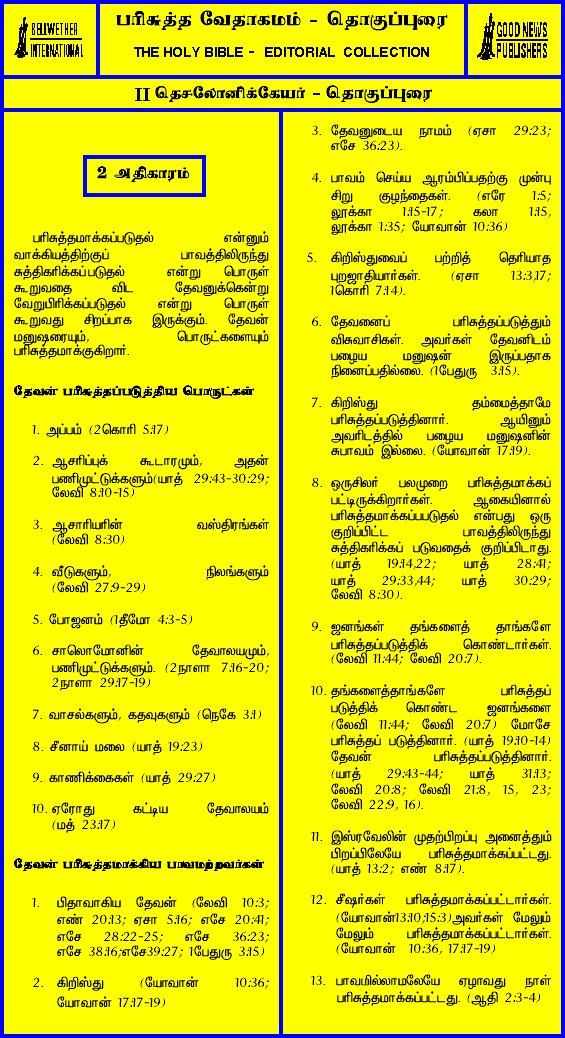 BELLWETHER
INTERNATIONAL
பரிசுத்த வேதாகமம் - தொகுப்புரை
THE HOLY BIBLE - EDITORIAL COLLECTION
GOOD NEWS
PUBLISHERS
II தெசலோனிக்கேயர் - தொகுப்புரை
2 அதிகாரம்
பரிசுத்தமாக்கப்படுதல் என்னும்
வாக்கியத்திற்குப் பாவத்திலிருந்து
சுத்திகரிக்கப்படுதல் என்று பொருள்
கூறுவதை விட தேவனுக்கென்று
வேறுபிரிக்கப்படுதல் என்று பொருள்
கூறுவது சிறப்பாக இருக்கும். தேவன்
மனுஷரையும், பொருட்களையும்
பரிசுத்தமாக்குகிறார்.
தேவன் பரிசுத்தப்படுத்திய பொருட்கள்
1. அப்பம் (2கொரி 5:17)
2. ஆசரிப்புக் கூடாரமும், அதன்
பணிமுட்டுக்களும்(யாத் 29:43-30:29;
லேவி 8:10-15)
3. ஆசாரியரின் வஸ்திரங்கள்
(லேவி 8:30)
4. வீடுகளும், நிலங்களும்
(லேவி 27:9-29)
5. போஜனம் (1தீமோ 4:3-5)
6. சாலொமோனின் தேவாலயமும்,
பணிமுட்டுக்களும். (2நாளா 7:16-20;
2நாளா 29:17-19)
7. வாசல்களும், கதவுகளும் (நெகே 3:1)
8. சீனாய் மலை (யாத் 19:23)
9. காணிக்கைகள் (யாத் 29:27)
10. ஏரோது கட்டிய தேவாலயம்
(மத் 23:17)
தேவன் பரிசுத்தமாக்கிய பாவமற்றவர்கள்
1. பிதாவாகிய தேவன் (லேவி 10:3;
எண் 20:13; ஏசா 5:16; எசே 20:41;
எசே 28:22-25; எசே 36:23;
எசே 38:16;எசே39:27; 1பேதுரு 3:15)
2. கிறிஸ்து (யோவான் 10:36;
யோவான் 17:17-19)
3. தேவனுடைய நாமம் (ஏசா 29:23;
எசே 36:23).
4. பாவம் செய்ய ஆரம்பிப்பதற்கு முன்பு
சிறு குழந்தைகள். (எரே 1:5;
லூக்கா 1:15-17; கலா 1:15,
லூக்கா 1:35; யோவான் 10:36)
5. கிறிஸ்துவைப் பற்றித் தெரியாத
புறஜாதியார்கள். (ஏசா 13:3,17;
1கொரி 7:14).
6. தேவனைப் பரிசுத்தப்படுத்தும்
விசுவாசிகள். அவர்கள் தேவனிடம்
பழைய மனுஷன் இருப்பதாக
நினைப்பதில்லை. (1பேதுரு 3:15).
7. கிறிஸ்து தம்மைத்தாமே
பரிசுத்தப்படுத்தினார். ஆயினும்
அவரிடத்தில் பழைய மனுஷனின்
சுபாவம் இல்லை. (யோவான் 17:19).
8. ஒருசிலர் பலமுறை பரிசுத்தமாக்கப்
பட்டிருக்கிறார்கள். ஆகையினால்
பரிசுத்தமாக்கப்படுதல் என்பது ஒரு
குறிப்பிட்ட பாவத்திலிருந்து
சுத்திகரிக்கப் படுவதைக் குறிப்பிடாது.
(யாத் 19:14,22; யாத் 28:41;
யாத் 29:33,44; யாத் 30:29;
லேவி 8:30).
9. ஜனங்கள் தங்களைத் தாங்களே
பரிசுத்தப்படுத்திக் கொண்டார்கள்.
(லேவி 11:44; லேவி 20:7).
10. தங்களைத்தாங்களே பரிசுத்தப்
படுத்திக் கொண்ட ஜனங்களை
(லேவி 11:44; லேவி 20:7) மோசே
பரிசுத்தப் படுத்தினார். (யாத் 19:10-14)
தேவன் பரிசுத்தப்படுத்தினார்.
(யாத் 29:43-44; யாத் 31:13;
லேவி 20:8; லேவி 21:8, 15, 23;
லேவி 22:9, 16).
11. இஸ்ரவேலின் முதற்பிறப்பு அனைத்தும்
பிறப்பிலேயே பரிசுத்தமாக்கப்பட்டது.
(யாத் 13:2; எண் 8:17).
12. சீஷர்கள் பரிசுத்தமாக்கப்பட்டார்கள்.
(யோவான்13:10;15:3)அவர்கள் மேலும்
மேலும் பரிசுத்தமாக்கப்பட்டார்கள்.
(யோவான் 10:36, 17:17-19)
13. பாவமில்லாமலேயே ஏழாவது நாள்
பரிசுத்தமாக்கப்பட்டது. (ஆதி 2:3-4)